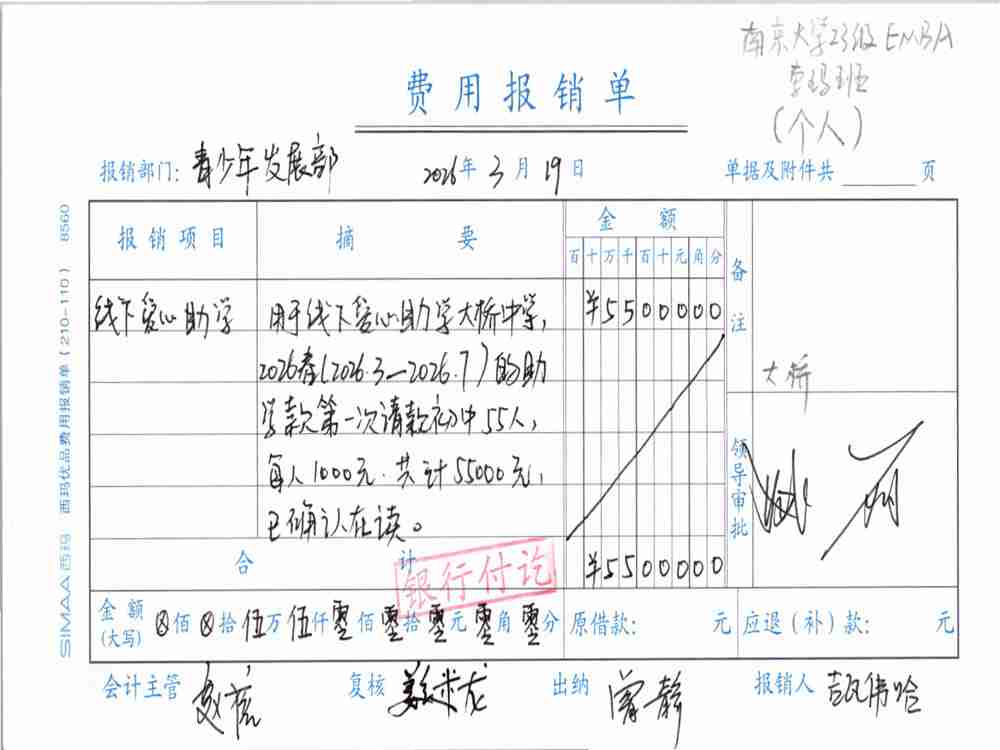 南京大学23级 EMBA
班
(个人)
费用报销单
报销部门: 青少年发展部 2026年 3月 19日 单据及附件共 页
报销项目 摘要 金额 备注
百十万千百十元角分
线下爱心助学 用于线下爱心助学大桥中学, ¥5500000
2026春(2026.3—2026.7)的助
学款第一次请款初中55人,
每人1000元.共计55000元,
已确认在读。
大桥
领导审批
合计 ¥5500000
银行付讫
金额(大写) ⊗佰⊗拾伍万伍仟零佰零拾零元零角零分 原借款: 元 应退(补)款: 元
会计主管 复核 出纳 曾静 报销人
SIMAA西玛 西玛优品费用报销单(210-110) 8560